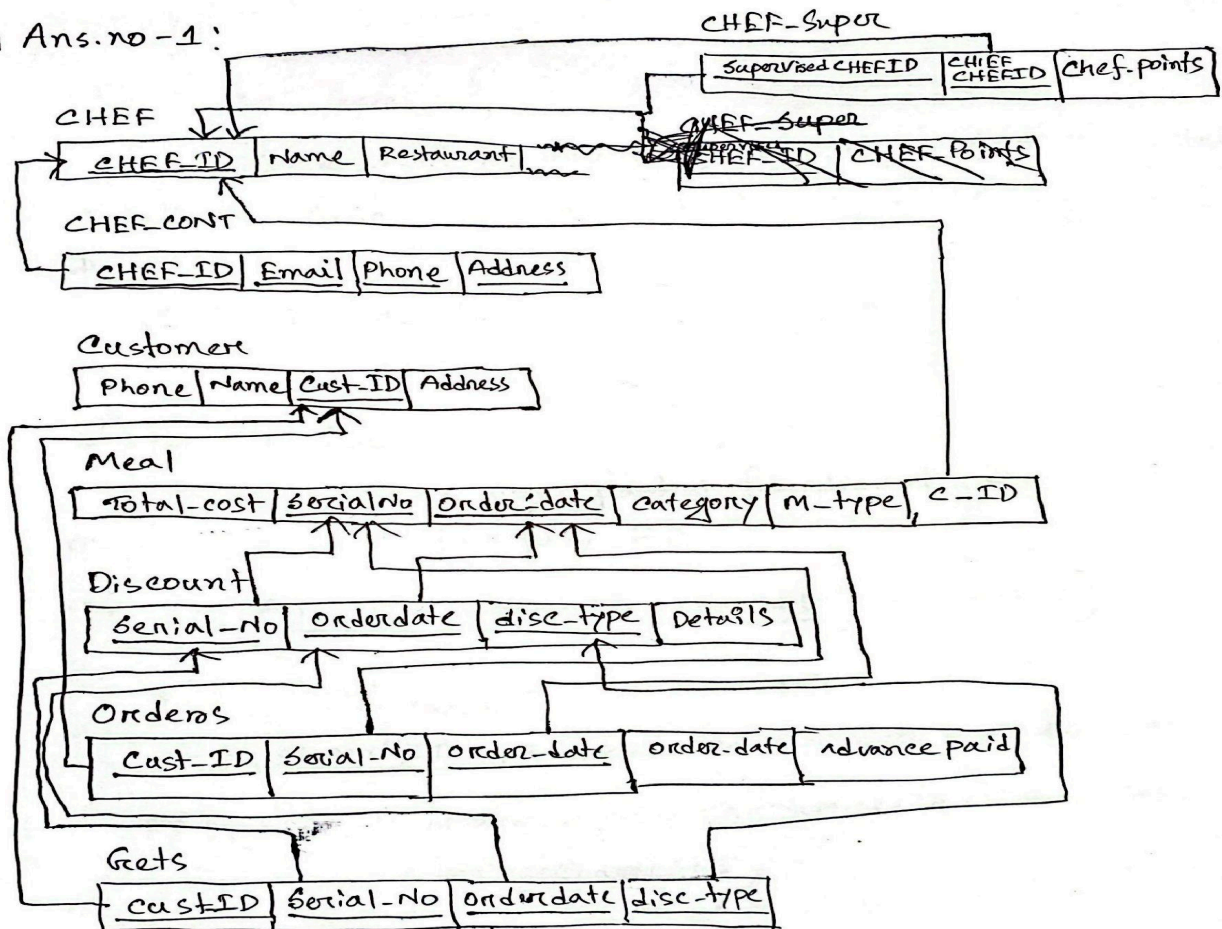 Ans.no-1:
CHEF-Super
Supervised CHEFID | CHIEF CHEFID | Chef-points
CHEF
CHEF_Super
CHEF_ID | Name | Restaurant
CHEF_ID | CHEF-Points
CHEF_CONT
CHEF_ID | Email | Phone | Address
Customer
Phone | Name | Cust_ID | Address
Meal
Total-cost | SerialNo | Order-date | Category | M_type | C_ID
Discount
Serial_No | Orderdate | disc_type | Details
Orders
Cust_ID | Serial-No | order-date | order-date | Advance paid
Gets
Cust_ID | Serial-No | Orderdate | disc-type